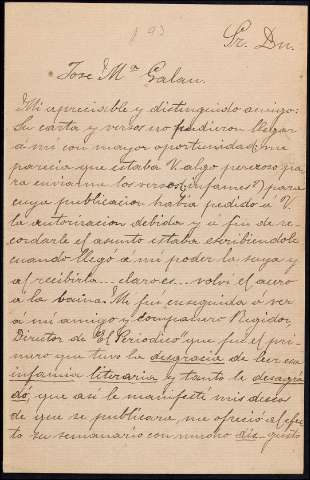 Sr. Dn.
Jose Mª Galan.
Mi apreciable y distinguido amigo:
Su carta y versos no pudieron llegar
á mi con mayor oportunidad; me
parecia que estaba V. algo perezoso pa
ra enviarme los versos (infames?) para
cuya publicacion habia pedido á V.
la autorizacion debida y á fin de re-
cordarle el asunto estaba escribiendole
cuando llegó á mi poder la suya y
al recibirla... claro es... volvi el acero
á la baina. Me fui enseguida á ver
á mi amigo y compañero Regidor,
Director de "El Periodico" que fue el pri-
mero que tuvo la desgracia de leer esa
infamia literaria y tanto le desagra
dó, que asi le manifesté mis deseos
de que se publicara, me ofreció al efec
to su semanario con mucho dis-gusto